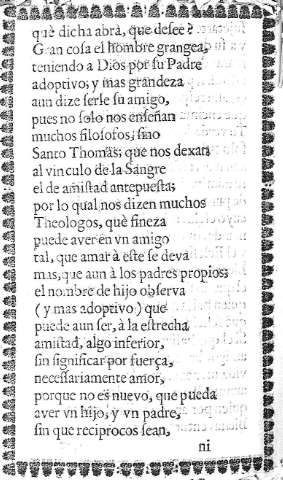 què dicha abrà, que desee?
Gran cosa el hombre grangea,
teniendo a Dios por su Padre
adoptivo; y mas grandeza
aun dize serle su amigo,
pues no solo nos enseñan
muchos filosofos, sino
Santo Thomàs; que nos dexan
al vinculo de la Sangre
el de amistad antepuesta;
por lo qual nos dizen muchos
Theologos, què fineza
puede aver en vn amigo
tal, que amar à este se deva
mas, que aun à los padres propios;
el nombre de hijo observa
( y mas adoptivo ) que
puede aun ser, à la estrecha
amistad, algo inferior,
sin significar por fuerça,
necessariamente amor,
porque no es nuevo, que pueda
aver vn hijo, y vn padre,
sin que reciprocos sean,
ni